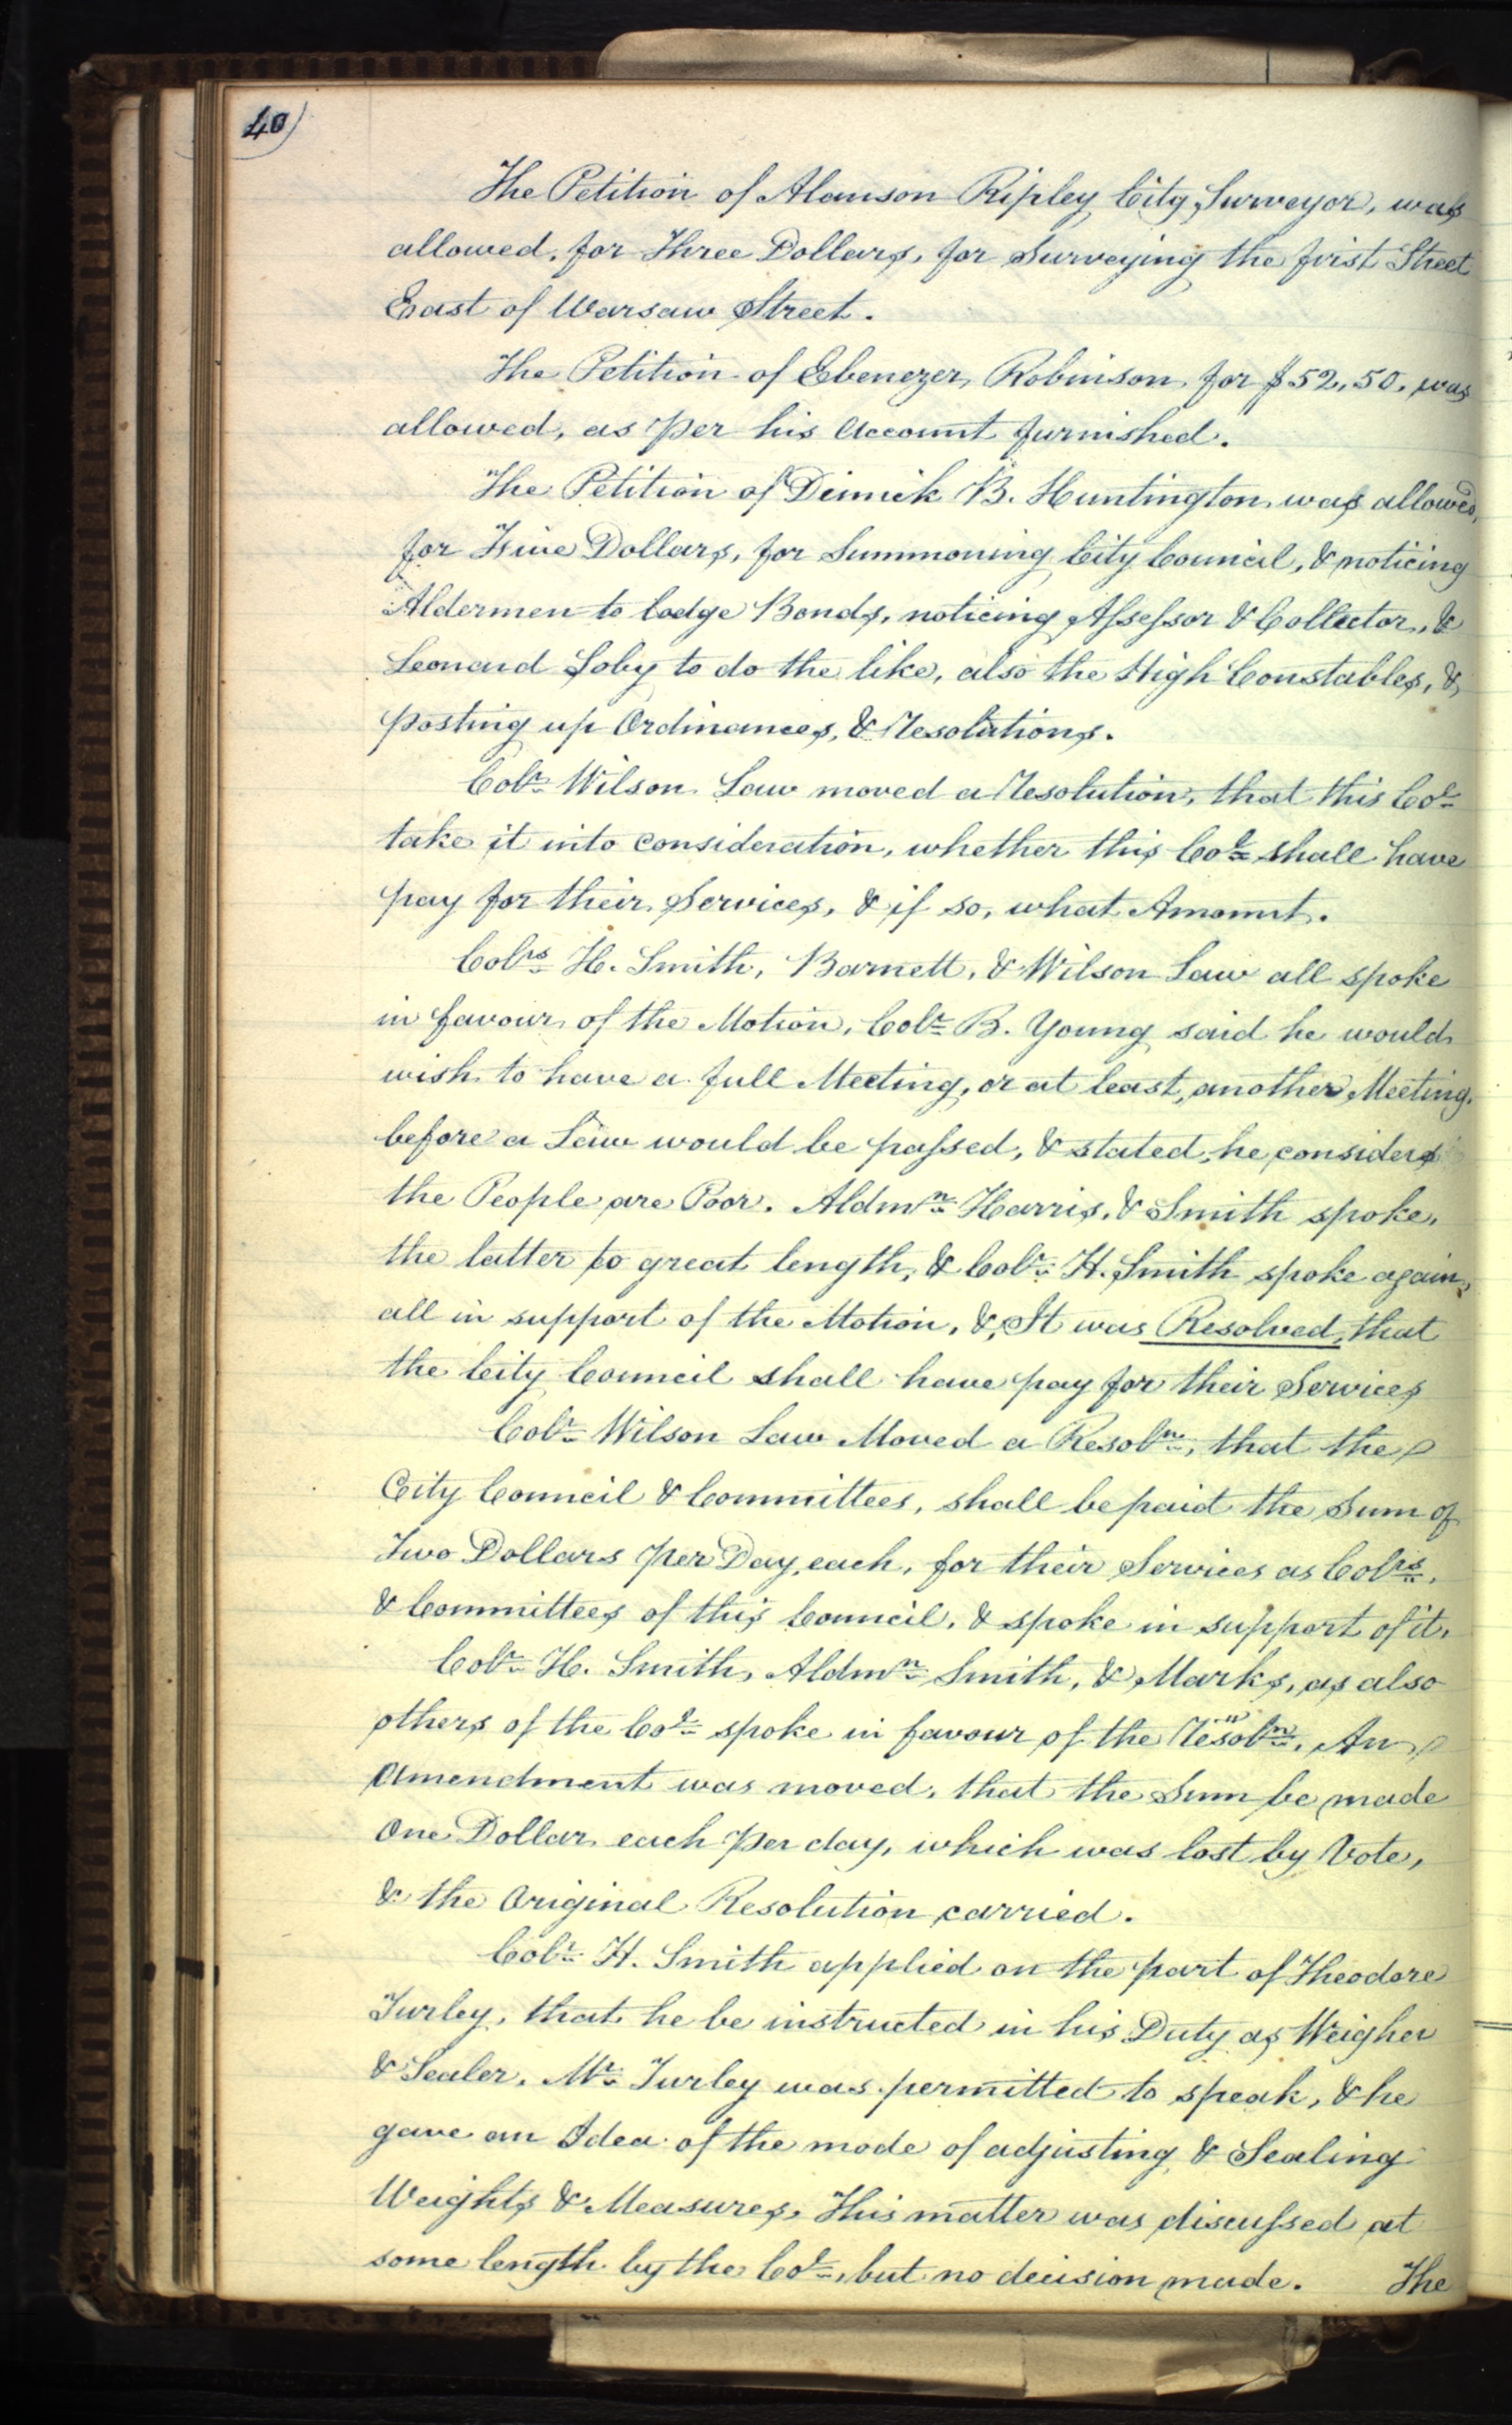 40)
The Petition of Alanson Ripley City Surveyor, was
allowed, for Three Dollars, for Surveying the first Street
East of Warsaw Street.
The Petition of Ebenezer Robinson for $52,50, was
allowed, as per his Account furnished.
The Petition of Dimick B. Huntington was allowed,
for Five Dollars, for Summoning City Council, & noticing
Aldermen to lodge Bonds, noticing Assessor & Collector, &
Leonard Soby to do the like, also the High Constables, &
posting up Ordinances, & Resolutions.
Colr. Wilson Law moved a Resolution, that this Col.
take it into consideration, whether this Col. shall have
pay for their Services, & if so, what Amount.
Colrs. H. Smith, Barnett, & Wilson Law all spoke
in favour of the Motion, Colr. B. Young said he would
wish to have a full Meeting, or at least, another Meeting,
before a Law would be passed, & stated, he considers
the People are Poor. Aldmn. Harris, & Smith spoke,
the latter to great length, & Colr. H. Smith spoke again,
all in support of the Motion, & It was Resolved, that
the City Council shall have pay for their Services
Colr. Wilson Law Moved a Resoln., that the
City Council & Committees, shall be paid the Sum of
Two Dollars per Day, each, for their Services as Colrs.
& Committees of this Council, & spoke in support of it.
Colr. H. Smith, Aldmn. Smith, & Marks, as also
others of the Col. spoke in favour of the Resoln. An
Amendment was moved, that the Sum be made
One Dollar each per day, which was lost by Vote,
& the Original Resolution carried.
Colr. H. Smith applied on the part of Theodore
Turley, that he be instructed in his Duty as Weigher
& Sealer. Mr. Turley was permitted to speak, & he
gave an Idea of the mode of adjusting & Sealing
Weights & Measures, This matter was discussed at
some length by the Col., but no decision made. The